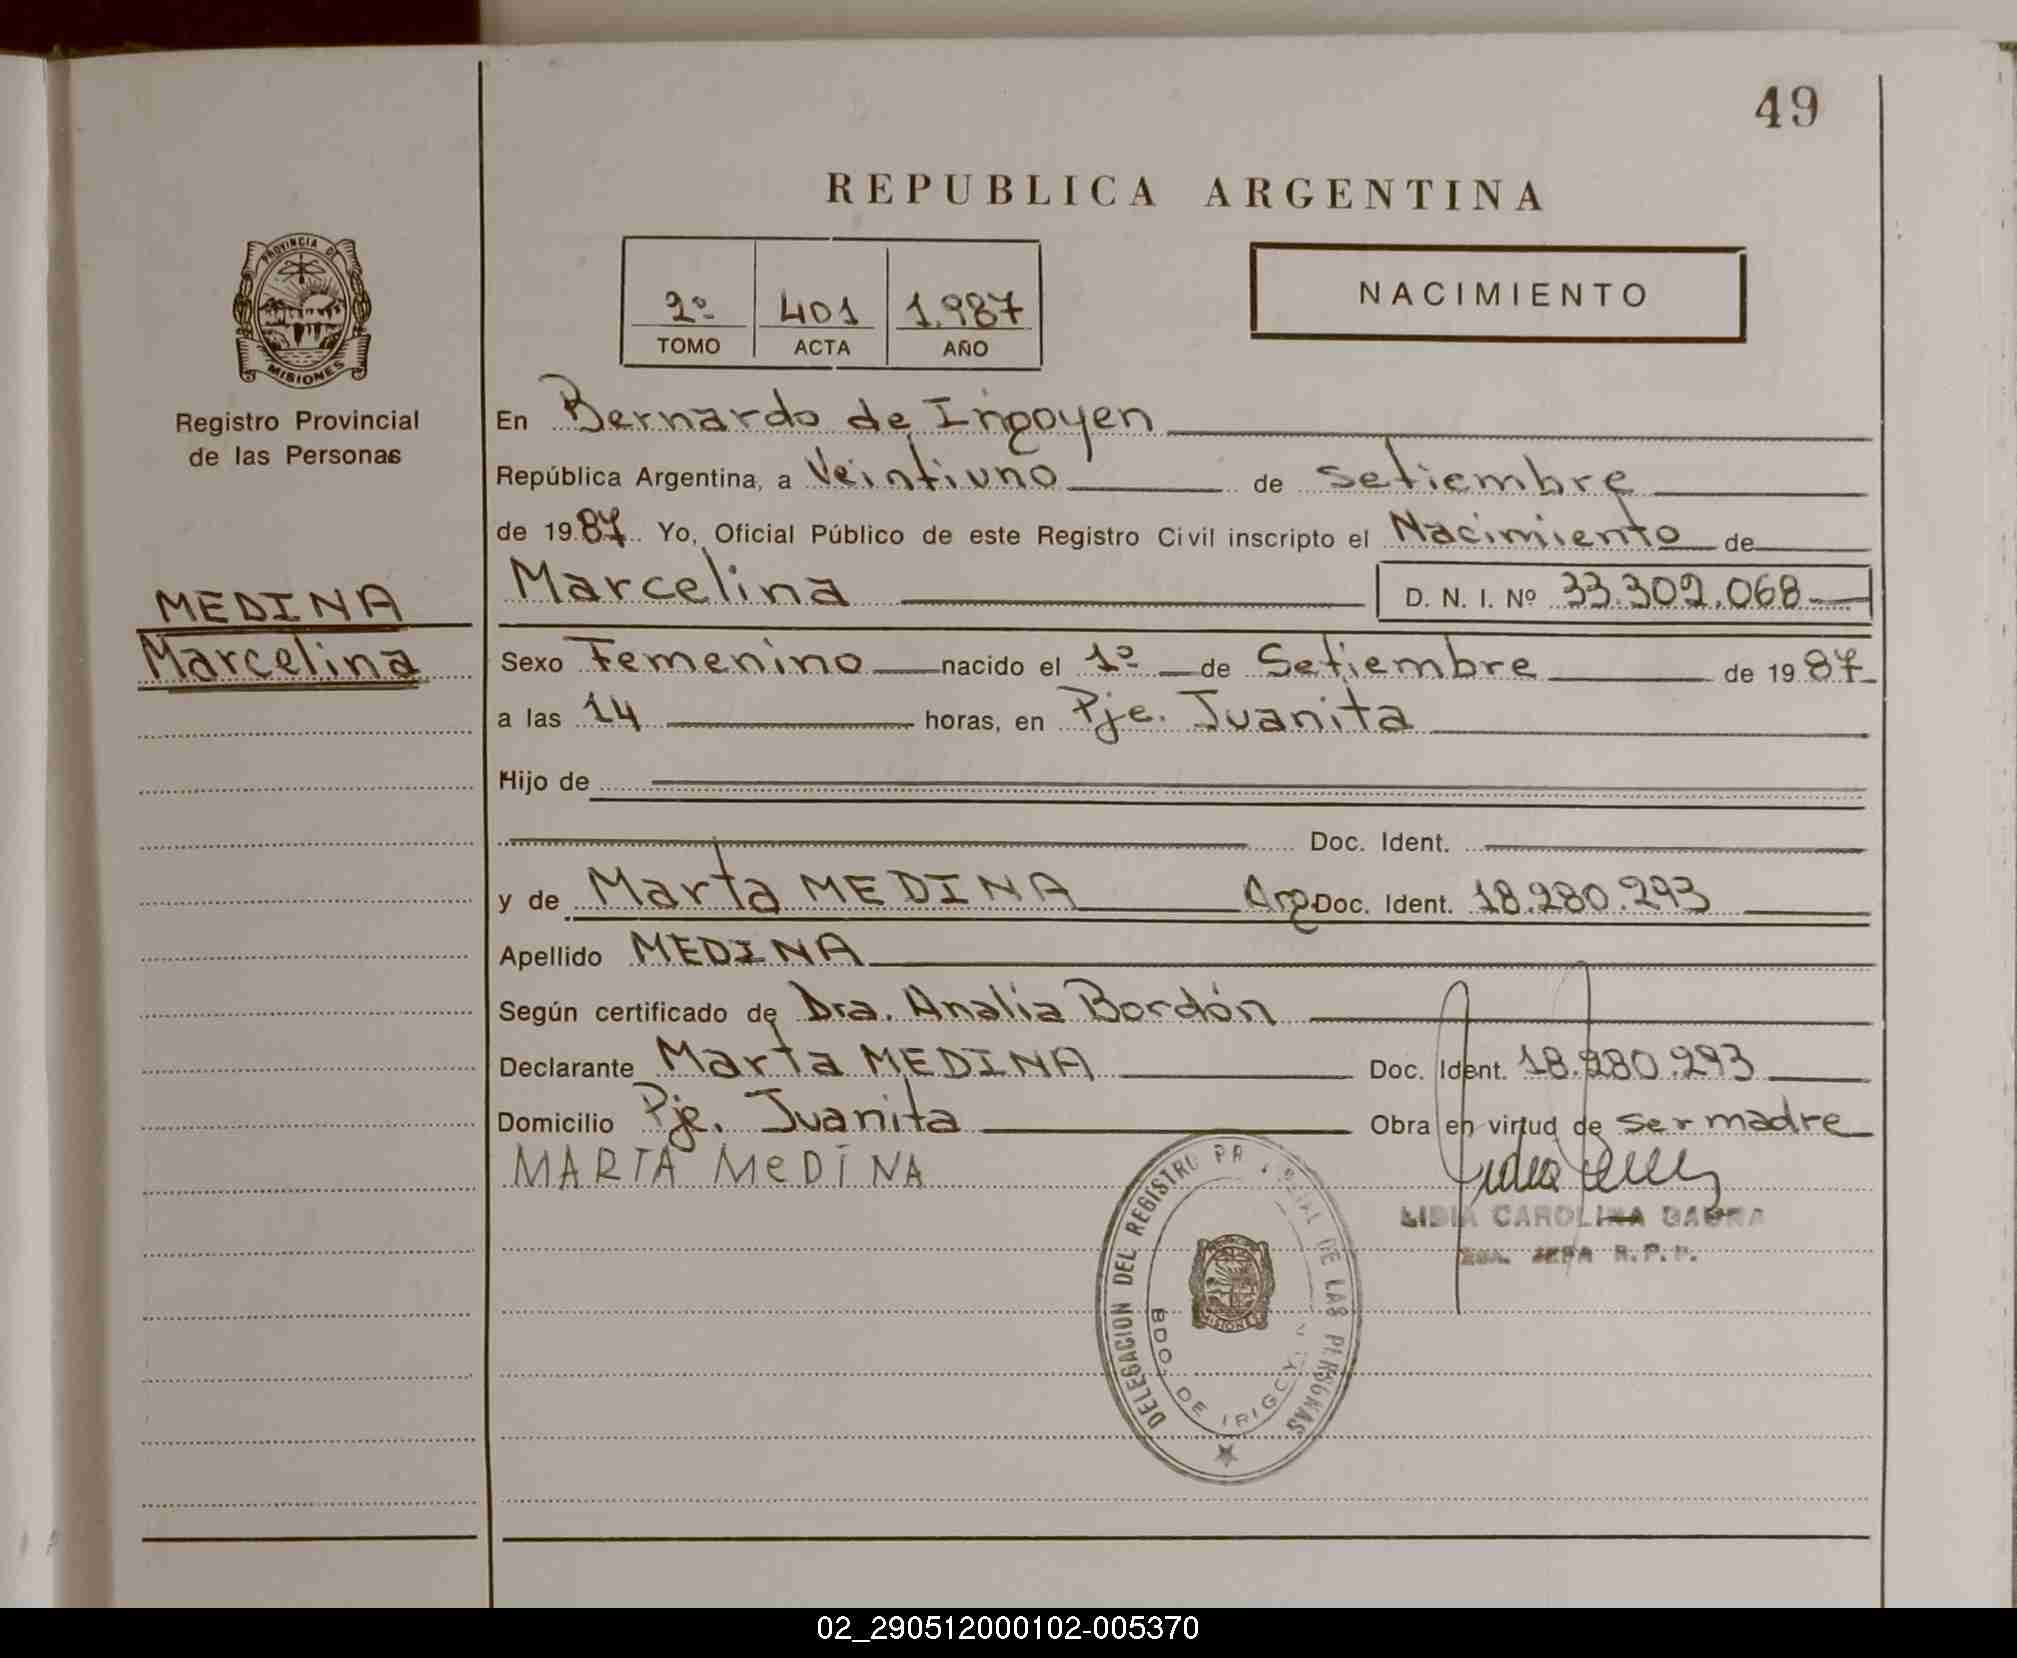 49
REPUBLICA ARGENTINA
PROVINCIA DE
MISIONES
Registro Provincial
de las Personas
MEDINA
Marcelina
2º 401 1.987
TOMO ACTA AÑO
NACIMIENTO
En Bernardo de Irigoyen
República Argentina, a Veintiuno de Setiembre
de 1987. Yo, Oficial Público de este Registro Civil inscripto el Nacimiento de
Marcelina D. N. I. Nº 33.302.068
Sexo Femenino nacido el 1º de Setiembre de 1987
a las 14 horas, en Pje. Juanita
Hijo de
Doc. Ident.
y de Marta MEDINA Arg. Doc. Ident. 18.280.293
Apellido MEDINA
Según certificado de Dra. Analía Bordón
Declarante Marta MEDINA Doc. Ident. 18.280.293
Domicilio Pje. Juanita Obra en virtud de ser madre
MARTA MeDINA
LIDIA CAROLINA
JEFA R.P.P.
DELEGACION DEL REGISTRO DE LAS PERSONAS
BDO. DE IRIGOY
MISIONES
02_290512000102-005370